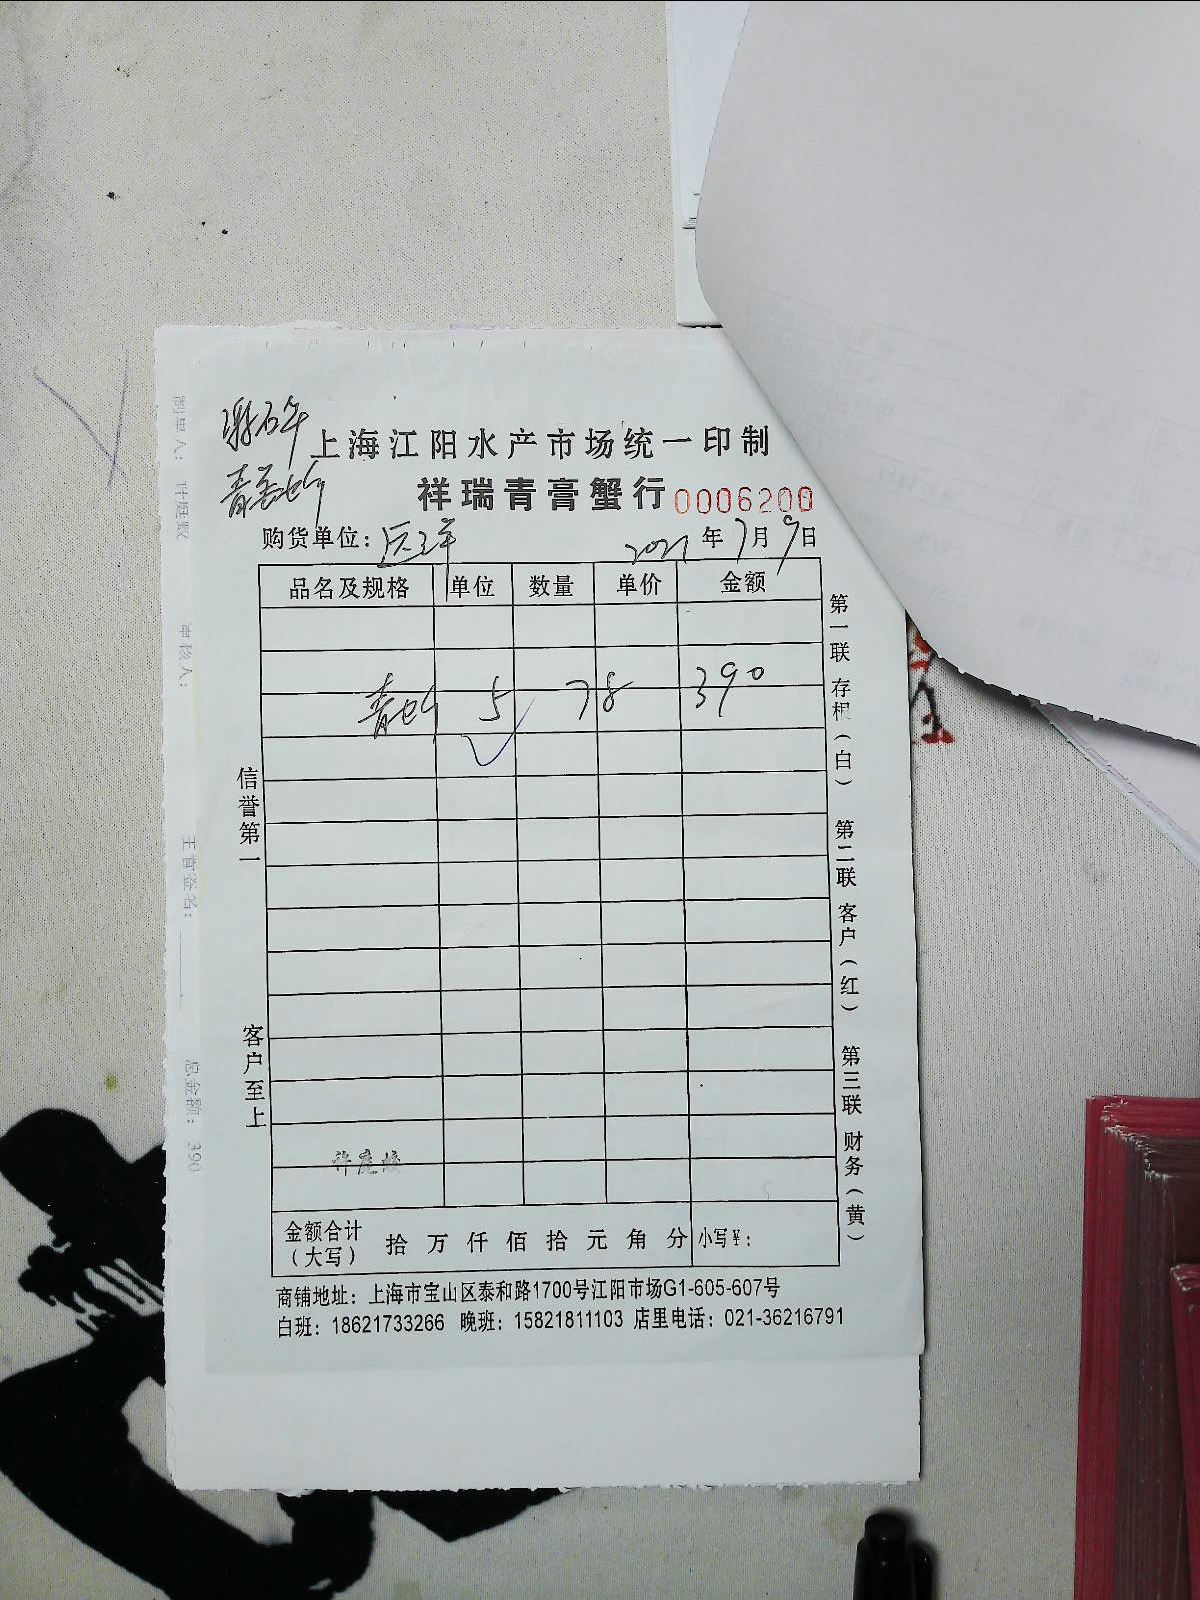 上海江阳水产市场统一印制
祥瑞青膏蟹行 0006200
购货单位: 2021年7月9日
品名及规格 单位 数量 单价 金额
青 5 78 390
信誉第一
客户至上
第一联 存根(白) 第二联 客户(红) 第三联 财务(黄)
许庭蛟
金额合计(大写) 拾 万 仟 佰 拾 元 角 分 小写¥:
商铺地址: 上海市宝山区泰和路1700号江阳市场G1-605-607号
白班: 18621733266 晚班: 15821811103 店里电话: 021-36216791
审核人:
总金额: 390